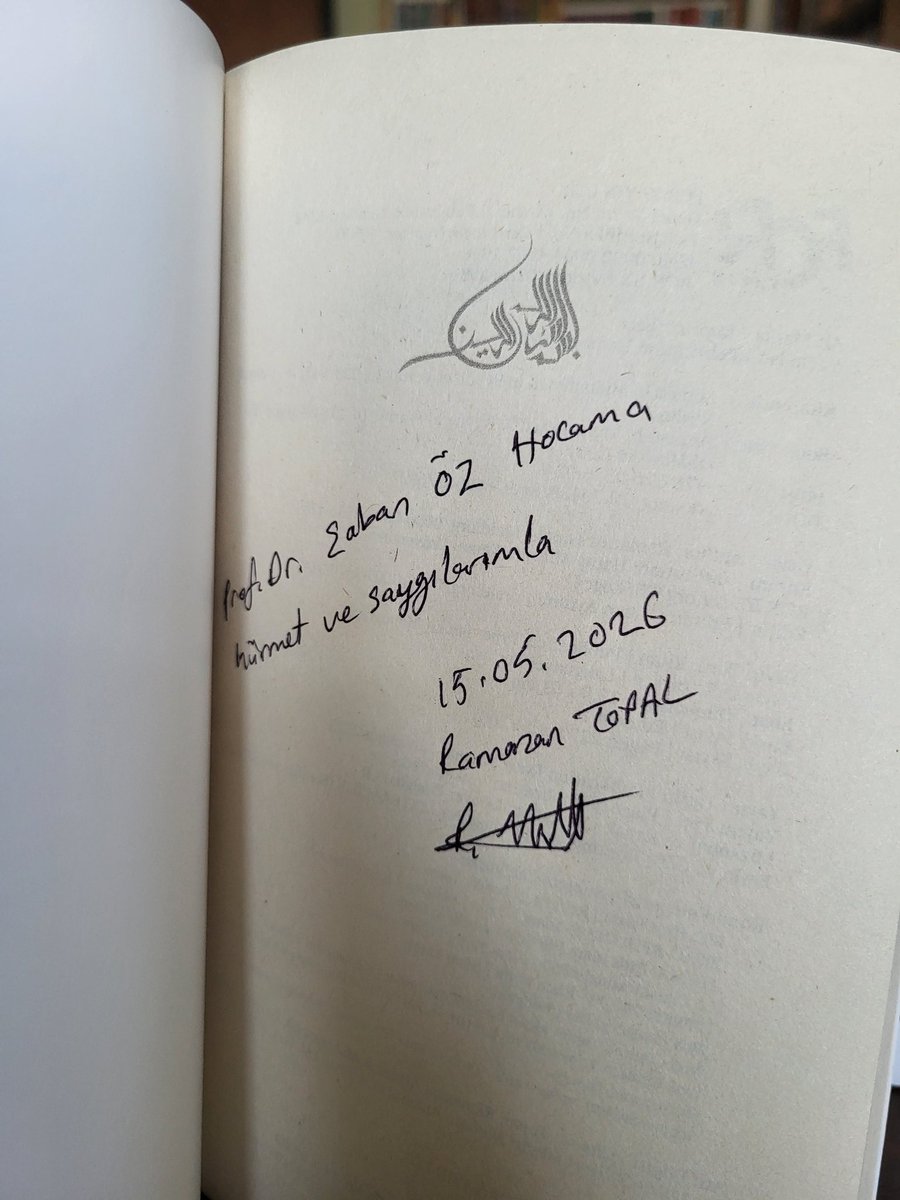 بسم الله الرحمن الرحيم
Prof. Dr. Şaban ÖZ Hocama
hürmet ve saygılarımla
15.05.2026
Ramazan TOPAL